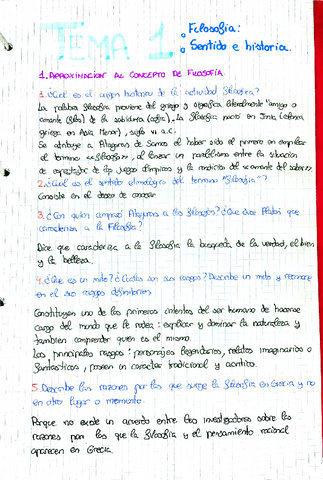 TEMA 1.
Filosofía:
Sentido e historia.
1. APROXIMACIÓN AL CONCEPTO DE FILOSOFÍA
1. ¿Cuál es el origen histórico de la actividad filosófica?
La palabra filosofía proviene del griego y significa literalmente "amigo o
amante (filos) de la sabiduría (sofía). La filosofía nació en Jonia (colonia
griega en Asia Menor), siglo VI a.C.
Se atribuye a Pitágoras de Samos el haber sido el primero en emplear
el término <<filósofo>>, al hacer un paralelismo entre la situación
de espectador de los juegos olímpicos y la condición del amante del saber.
2. ¿Cuál es el sentido etimológico del término "filosofía"?
Consiste en el deseo de conocer
3. ¿Con quién comparó Pitágoras a los filósofos? ¿Que dice Platón que
caracteriza a la Filosofía?
Dice que caracteriza a la filosofía la búsqueda de la verdad, el bien
y la belleza.
4. ¿Que es un mito? ¿Cuáles son sus rasgos? Describe un mito y reconoce
en él sus rasgos definitorios
Constituyen uno de los primeros intentos del ser humano de hacerse
cargo del mundo que le rodea: explicar y dominar la naturaleza y
también comprender quien es el mismo.
Los principales rasgos: personajes legendarios, relatos imaginarios o
fantásticos, poseen un carácter tradicional y acrítico.
5. Describe las razones por las que surge la filosofía en Grecia y no
en otro lugar o momento.
Porque no existe un acuerdo entre los investigadores sobre las
razones por las que la filosofía y el pensamiento racional
aparecen en Grecia.